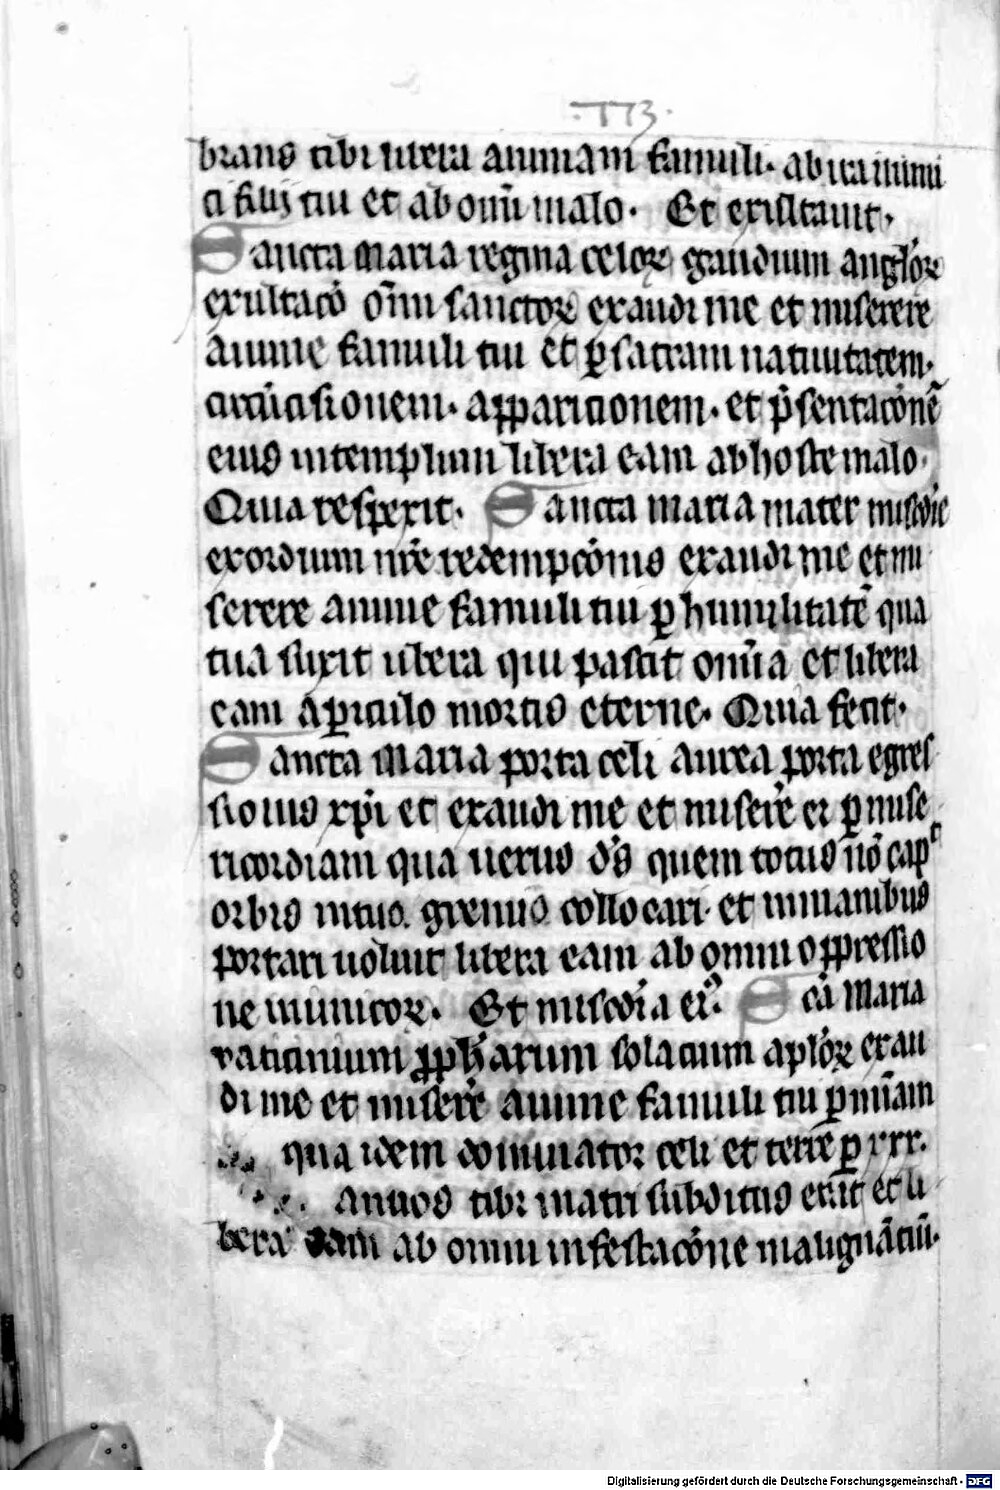 ·113·
brans tibi libera animam famuli· ab ira inimi
ci filij tui et ab om̄i malo· Et exultauit·
Sancta maria regina celoꝝ gaudium anglo̓ꝝ
exultac̄o om̄i sanctoꝝ exaudi me et miserere
anime famuli tui et ꝑ sacram natiuitatem·
circūcisionem· apparicionem· et p̄sentac̄onē
eius in templum libera eam ab hoste malo·
Quia respexit· Sancta maria mater misc̄die
exordium nr̄e redempc̄onis exaudi me et mi
serere anime famuli tui ꝑ humilitatē qua
tua suxit ubera qui pascit om̄ia et libera
eam a ꝑiculo mortis eterne· Quia fecit·
Sancta maria porta celi aurea porta egres
sionis xp̄i et exaudi me et miser̄e ei ꝑ mise
ricordiam qua uerus d̄s quem totus nō cap
orbis in tuo gremio collocari· et in manibus
portari uoluit libera eam ab omni oppressio
ne inimicoꝝ· Et misc̄dia ei᷒· Sc̄a maria
vaticinium ꝓph̄arum solacium aplo̓ꝝ exau
di me et miser̄e anime famuli tui ꝑ miam
qua idem dominator celi et terre ꝑ xxx·
annos tibi matri subditus erat et li
bera eam ab omni infestac̄one malignāciū·
Digitalisierung gefördert durch die Deutsche Forschungsgemeinschaft - DFG